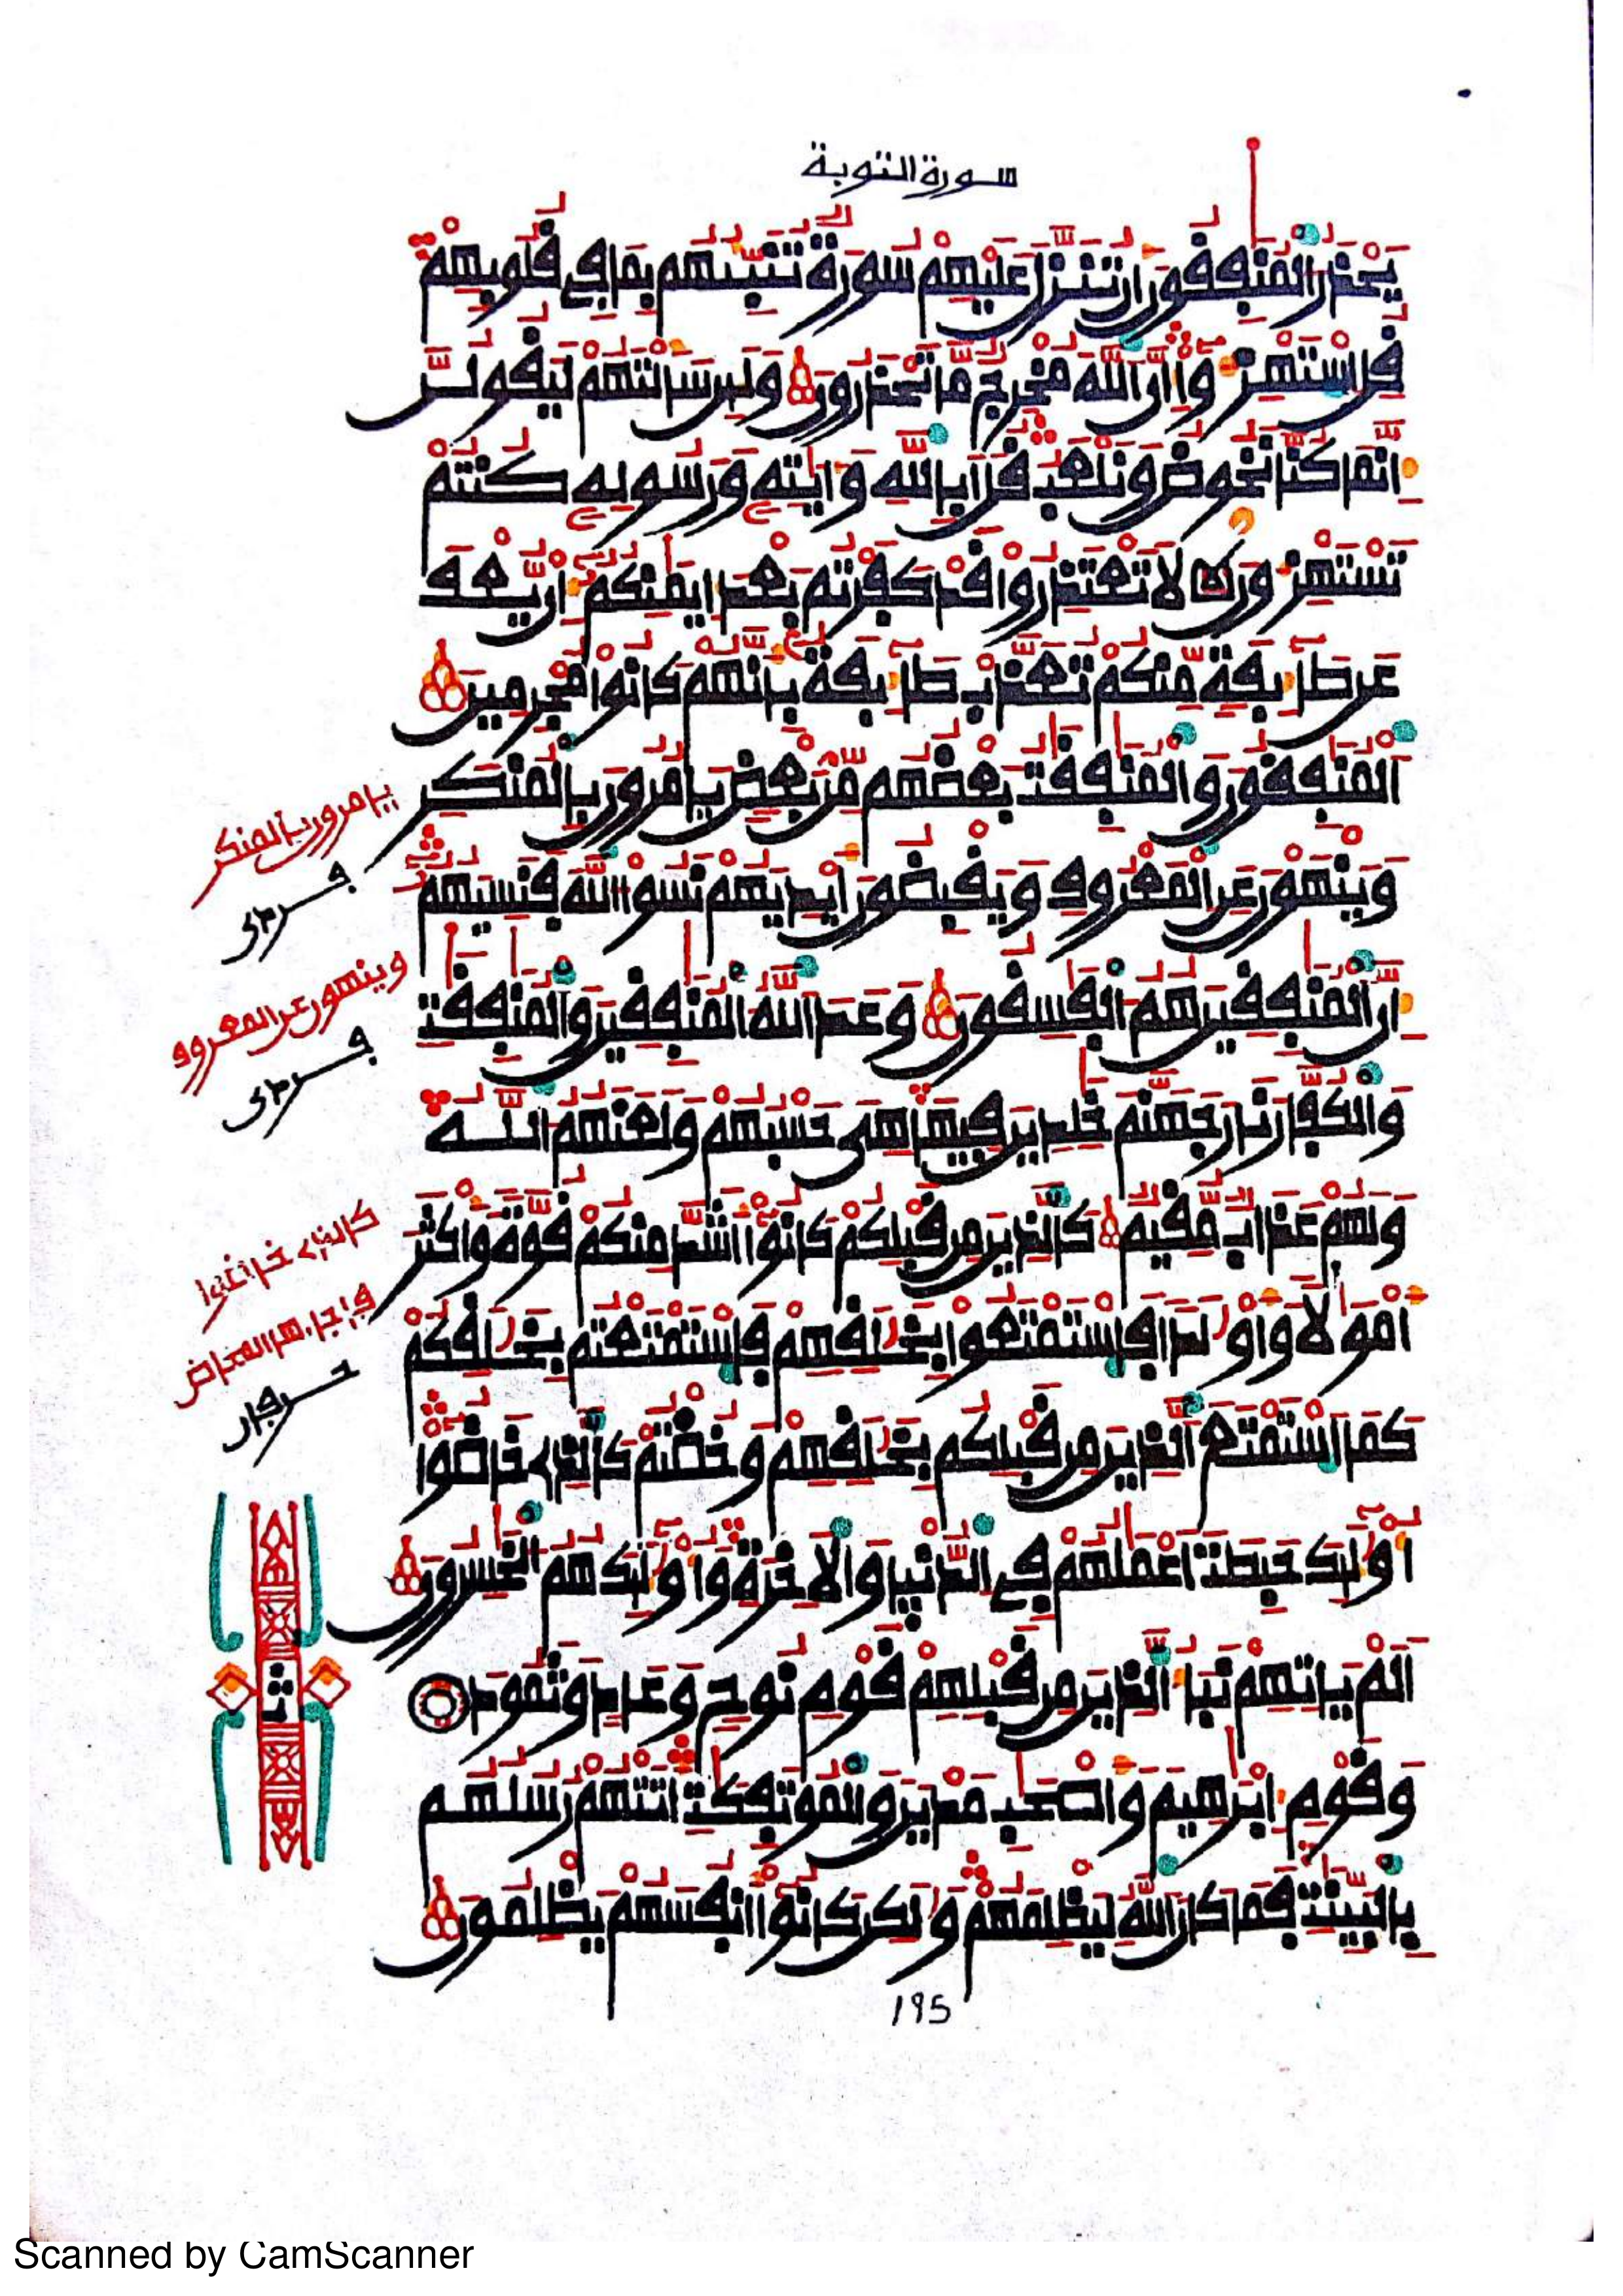 سورة التوبة
يَحْذَرُ الْمُنَٰفِقُونَ أَن تُنَزَّلَ عَلَيْهِمْ سُورَةٌ تُنَبِّئُهُم بِمَا فِي قُلُوبِهِمْ
قُلِ اسْتَهْزِءُوا إِنَّ اللَّهَ مُخْرِجٌ مَّا تَحْذَرُونَ وَلَئِن سَأَلْتَهُمْ لَيَقُولُنَّ
إِنَّمَا كُنَّا نَخُوضُ وَنَلْعَبُ قُلْ أَبِاللَّهِ وَءَايَٰتِهِ وَرَسُولِهِ كُنتُمْ
تَسْتَهْزِءُونَ لَا تَعْتَذِرُوا قَدْ كَفَرْتُم بَعْدَ إِيمَٰنِكُمْ إِن يُّعْفَ
عَن طَآئِفَةٍ مِّنكُمْ تُعَذَّبْ طَآئِفَةٌ بِأَنَّهُمْ كَانُوا مُجْرِمِينَ
الْمُنَٰفِقُونَ وَالْمُنَٰفِقَٰتُ بَعْضُهُم مِّنْ بَعْضٍ يَامُرُونَ بِالْمُنكَرِ
وَيَنْهَوْنَ عَنِ الْمَعْرُوفِ وَيَقْبِضُونَ أَيْدِيَهُمْ نَسُوا اللَّهَ فَنَسِيَهُمْ
إِنَّ الْمُنَٰفِقِينَ هُمُ الْفَٰسِقُونَ وَعَدَ اللَّهُ الْمُنَٰفِقِينَ وَالْمُنَٰفِقَٰتِ
وَالْكُفَّارَ نَارَ جَهَنَّمَ خَٰلِدِينَ فِيهَا هِيَ حَسْبُهُمْ وَلَعَنَهُمُ اللَّهُ
وَلَهُمْ عَذَابٌ مُّقِيمٌ كَالَّذِينَ مِن قَبْلِكُمْ كَانُوا أَشَدَّ مِنكُمْ قُوَّةً وَأَكْثَرَ
أَمْوَٰلًا وَأَوْلَٰدًا فَاسْتَمْتَعُوا بِخَلَٰقِهِمْ فَاسْتَمْتَعْتُم بِخَلَٰقِكُمْ
كَمَا اسْتَمْتَعَ الَّذِينَ مِن قَبْلِكُم بِخَلَٰقِهِمْ وَخُضْتُمْ كَالَّذِي خَاضُوا
أُوْلَٰئِكَ حَبِطَتْ أَعْمَٰلُهُمْ فِي الدُّنْيَا وَالْأَخِرَةِ وَأُوْلَٰئِكَ هُمُ الْخَٰسِرُونَ
أَلَمْ يَاتِهِمْ نَبَأُ الَّذِينَ مِن قَبْلِهِمْ قَوْمِ نُوحٍ وَعَادٍ وَثَمُودَ
وَقَوْمِ إِبْرَٰهِيمَ وَأَصْحَٰبِ مَدْيَنَ وَالْمُوتَفِكَٰتِ أَتَتْهُمْ رُسُلُهُم
بِالْبَيِّنَٰتِ فَمَا كَانَ اللَّهُ لِيَظْلِمَهُمْ وَلَٰكِن كَانُوا أَنفُسَهُمْ يَظْلِمُونَ
195
يامرون بالمنكر
وينهون عن المعروف
ثمن
Scanned by CamScanner